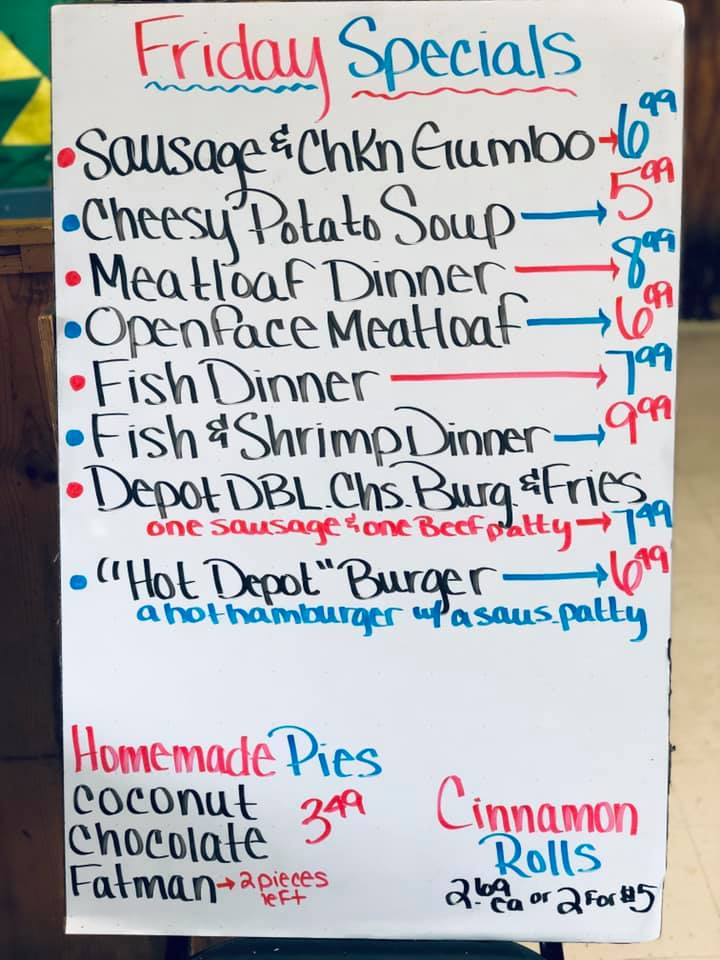 Friday Specials
• Sausage & Chkn Gumbo → 6.99
• Cheesy Potato Soup → 5.99
• Meatloaf Dinner → 8.99
• Openface Meatloaf → 6.99
• Fish Dinner → 7.99
• Fish & Shrimp Dinner → 9.99
• Depot DBL. Chs. Burg & Fries
one sausage & one Beef patty → 7.49
• "Hot Depot" Burger → 6.49
a hot hamburger w/ a saus. patty
Homemade Pies
coconut 3.49
chocolate
Fatman → 2 pieces
left
Cinnamon
Rolls
2.69 ea or 2 For $5